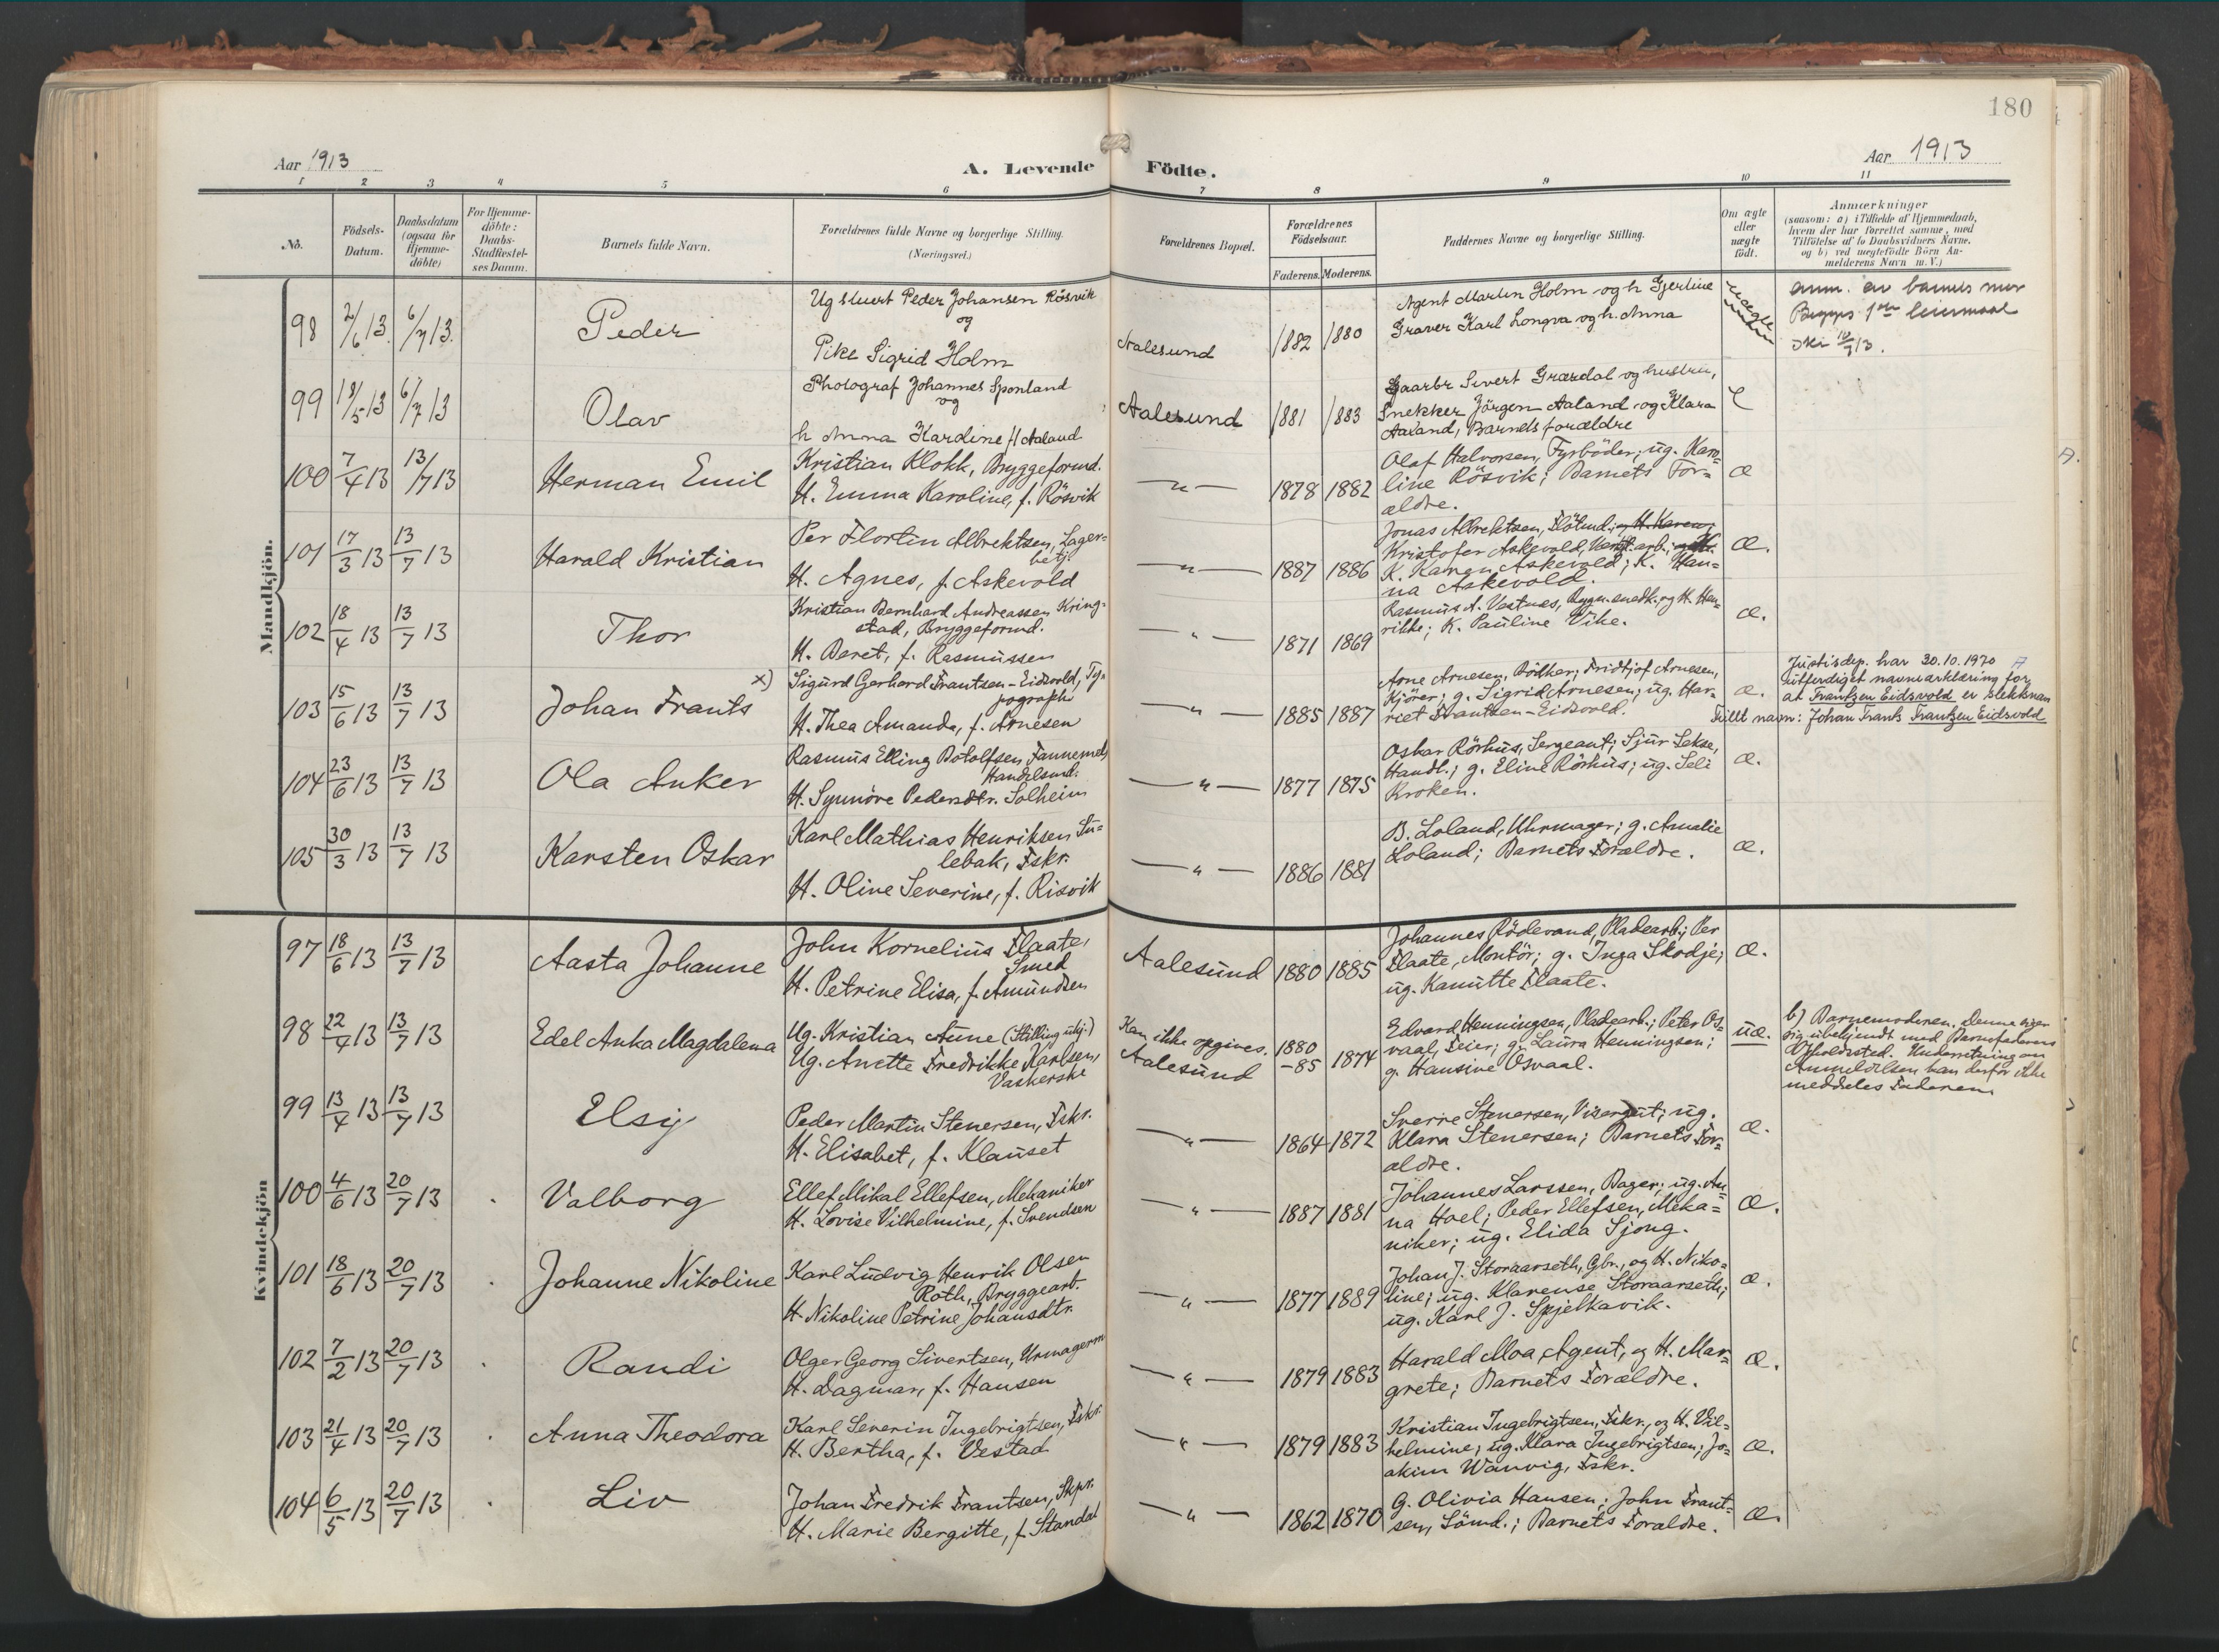 180
Aar 1913
A. Levende Födte.
Aar 1913
1 2 3 4 5 6 7 8 9 10 11
No.
Födsels-
Datum.
Daabsdatum
(ogsaa for
Hjemme-
döbte)
For Hjemme-
döbte:
Daabs-
Stadfæstel-
ses Datum.
Barnets fulde Navn.
Forældrenes fulde Navne og borgerlige Stilling.
(Næringsvei.)
Forældrenes Bopæl.
Forældrenes
Födselsaar.
Faderens. Moderens.
Faddernes Navne og borgerlige Stilling.
Om ægte
eller
uægte
födt.
Anmærkninger
(saasom: a) i Tilfælde af Hjemmedaab,
hvem der har forrettet samme, med
Tilföielse af to Daabsvidners Navne.
og b) ved uægtefödte Börn An-
melderens Navn m. V.)
Mandkjön.
98 2/6 13. 6/7 13. Peder
Ug stuert Peder Johansen Rösvik
og
Pike Sigrid Holm
Aalesund 1882 1880
Agent Martin Holm og h Gjertine
Graver Karl Longva og h. Anna
uægte
anm. av barnets mor
Begges 1ste leiermaal
99 18/5 13 6/7 13 Olav
Photograf Johannes Sponland
og
h Anna Kardine f/ Aaland
Aalesund 1881 1883
Gaarbr Sivert Grærdal og hustru,
Snekker Jörgen Aaland og Klara
Aaland, Barnets forældre
100 7/4 13 13/7 13 Herman Emil
Kristian Klokk, Bryggeformd.
H. Emma Karoline, f. Rösvik
—„— 1878 1882
Olaf Halvorsen, Fyrböder; ug. Karo-
line Rösvik; Barnets For-
ældre.
æ
101 17/3 13 13/7 13 Harald Kristian
Per Flortin Albrektsen, Lager-
betj.
H. Agnes, f. Askevold
—„— 1887 1886
Jonas Albrektsen, Flötmd.; og H. Karen;
Kristofer Askevold, Værft.arb.;
K. Karen Askevold; K. Han-
na Askevold.
æ.
102 18/4 13 13/7 13 Thor
Kristian Bernhard Andreassen Kring-
stad, Bryggeformd.
H. Beret, f. Rasmussen
—„— 1871 1869
Rasmus A. Vestnes, Bygn.snedk. og H. Hen-
rikke; K. Pauline Vike.
æ.
103 15/6 13 13/7 13 Johan Frants x)
Sigurd Gerhard Frantsen-Eidsvold, Ty-
pograph
H. Thea Amanda, f. Arnesen
—„— 1885 1887
Arne Arnesen, Bödker; Fridtjof Arnesen,
Kjörer; g. Sigrid Arnesen; ug. Har-
riet Frantsen-Eidsvold.
æ.
Justisdep. har 30.10.1970
utferdiget navneerklæring for
at Frantzen Eidsvold er slektsnavn
Fullt navn: Johan Frants Frantzen Eidsvold
104 23/6 13 13/7 13 Ola Anker
Rasmus Elling Botolfsen Fannemel,
Handelsmd.
H. Synnöve Pedersdtr. Solheim
—„— 1877 1875
Oskar Rörhus, Sergeant; Sjur Sekse,
Handl.; g. Eline Rörhus; ug. Seli
Kroken.
æ.
105 30/3 13 13/7 13 Karsten Oskar
Karl Mathias Henriksen Su-
lebak, Fskr.
H. Oline Severine, f. Risvik
—„— 1886 1881
B. Loland, Uhrmager; g. Amalie
Loland; Barnets Forældre.
æ.
Kvindekjön
97 18/6 13 13/7 13 Aasta Johanne
John Kornelius Flaate,
Smed
H. Petrine Elisa, f. Amundsen
Aalesund 1880 1885
Johannes Rödevand, Pladearb.; Per
Flaate, Montör; g. Inga Skodje;
ug. Kanutte Flaate.
æ.
98 22/4 13 13/7 13 Edel Anka Magdalena
Ug. Kristian Aune (Stilling ubj.)
Ug. Anette Fredrikke Karlsen,
Vaskerske
Kan ikke opgives.
Aalesund
1880
-85 1874
Edvard Henningsen, Pladearb.; Peter Os-
vaal, Feier; g. Laura Henningsen;
g. Hansine Osvaal.
uæ.
b) Barnemoderen. Denne siger
sig ubekjendt med Barnefaderens
Opholdssted. Underretning om
Anmeldelsen kan derfor ikke
meddeles Faderen.
99 13/4 13 13/7 13 Elsy
Peder Martin Stenersen, Fskr.
H. Elisabet, f. Klauset
—„— 1864 1872
Sverre Stenersen, Visergut; ug.
Klara Stenersen; Barnets For-
ældre.
æ.
100 4/6 13 20/7 13 Valborg
Ellef Mikal Ellefsen, Mekaniker
H. Lovise Vilhelmine, f. Svendsen
—„— 1887 1881
Johannes Larssen, Bager; ug. An-
na Hoel; Peder Ellefsen, Meka-
niker; ug. Elida Sjong.
æ.
101 18/6 13 20/7 13 Johanne Nikoline
Karl Ludvig Henrik Olsen
Roth, Bryggearb.
H. Nikoline Petrine Johansdtr.
—„— 1877 1889
Johan J. Storaarseth, Gbr., og H. Niko-
line; ug. Klarense Storaarseth;
ug. Karl J. Spjelkavik.
æ.
102 7/2 13 20/7 13 Randi
Olger Georg Sivertsen, Urmagerm
H. Dagmar, f. Hansen
—„— 1879 1883
Harald Moa, Agent, og H. Mar-
grete; Barnets Forældre.
æ.
103 21/4 13 20/7 13 Anna Theodora
Karl Severin Ingebrigtsen, Fskr.
H. Bertha, f. Vestad
—„— 1879 1883
Kristian Ingebrigtsen, Fskr., og H. Vil-
helmine; ug. Klara Ingebrigtsen; Jo-
akim Wanvig, Fskr.
æ.
104 6/5 13 20/7 13 Liv
Johan Fredrik Frantsen, Skpr.
H. Marie Bergitte, f. Standal
—„— 1862 1870
G. Olivia Hansen; John Frant-
sen, Sömd.; Barnets Forældre.
æ.